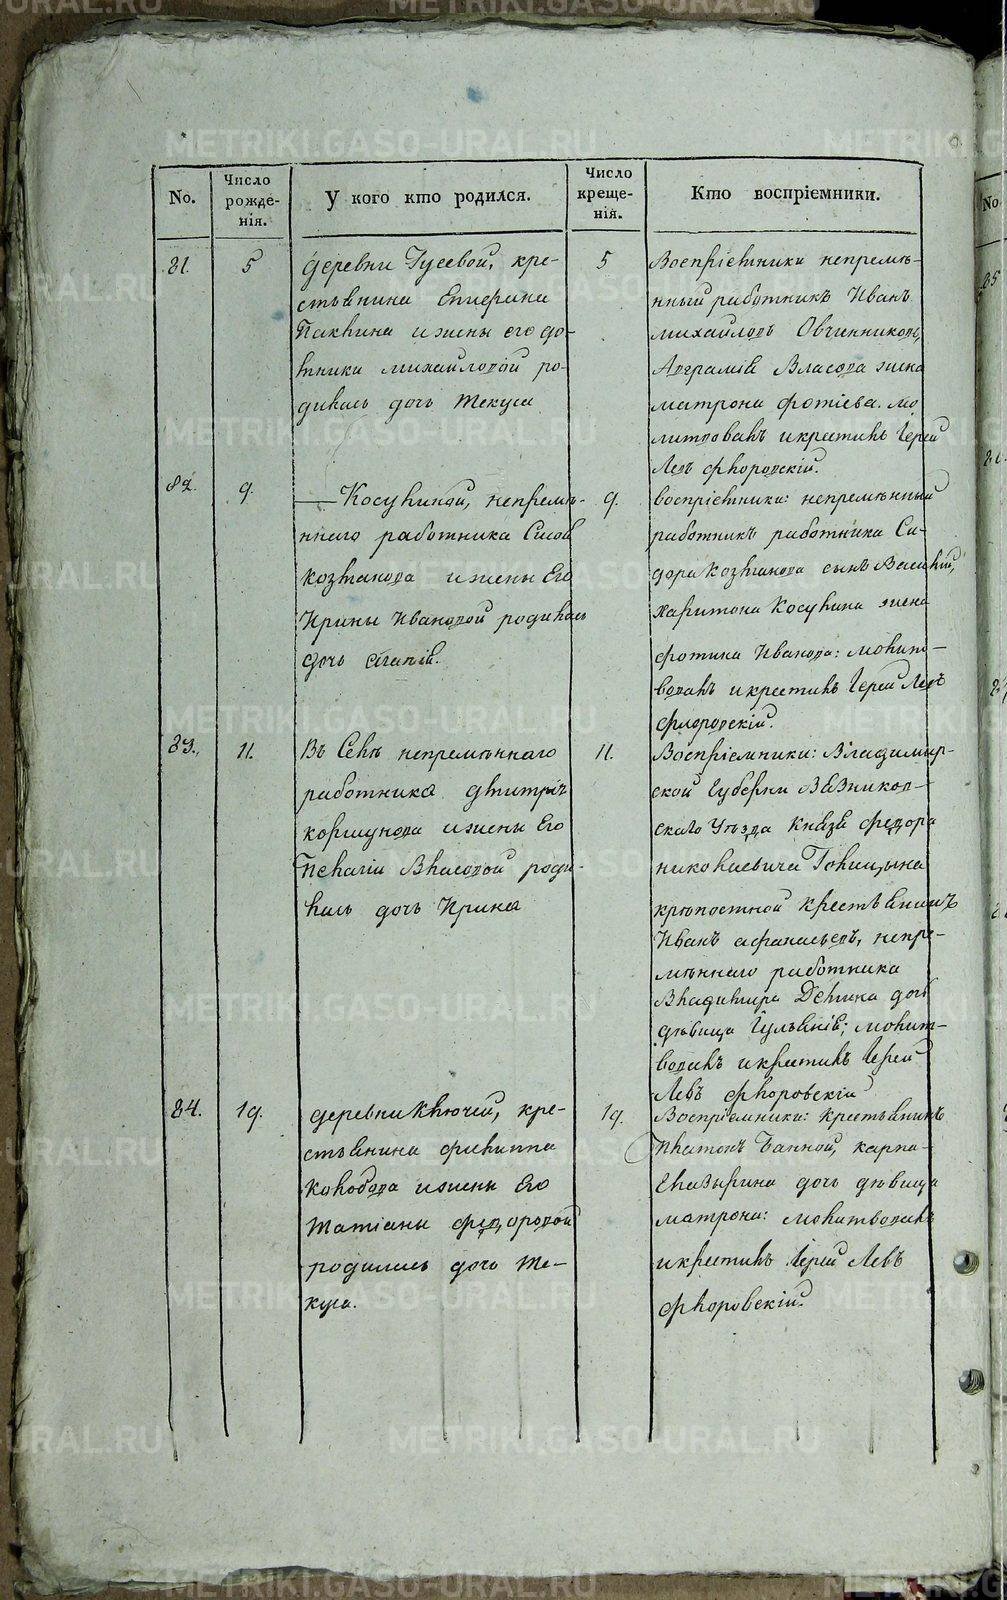 No.
Число рожде-нія.
У кого кто родился.
Число креще-нія.
Кто воспріемники.
81.
5
деревни Гусевой, кре-
стьянина
и жены его до-
мники Михайловой ро-
дилась дочь Текуса
5
Воспріемники непремѣ-
нный работникъ Иванъ
Михайловъ Овчинниковъ,
Авраміа Власова жена
Матрона Фотіева. мо
литвовалъ и крестилъ Іерей
Левъ Флоровскій.
82.
9.
— Косулиной, непремѣ-
ннаго работника
Козманова и жены Его
Ирины Ивановой родилась
дочь
9.
воспріемники: непремѣнный
работникъ работника Си-
дора Козманова сынъ Василій,
Харитона Косулина жена
Фотина Иванова: молит-
вовалъ и крестилъ Іерей Левъ
Флоровскій.
83.
11.
Въ Селѣ непремѣннаго
работника Дмитрія
Коршунова и жены Его
Пелагіи Власовой роди-
лась дочь Ирина
11.
Воспріемники: Владимир-
ской Губерни Вязников-
скаго Уѣзда Князя Федора
Николаевича Голицына
крѣпостной крестьянинъ
Иванъ Афанасьевъ, непре-
мѣннаго работника
Владимира дочь
дѣвица Іульянія; молит-
вовалъ и крестилъ Іерей
Левъ Флоровскій
84.
19.
деревни Ключей, кре-
стьянина Филиппа
Колобова и жены Его
Татіаны Федоровой
родилась дочь Те-
куса.
19.
Воспріемники: Крестьянинъ
Платонъ Банной, Карпа
Глазырина дочь дѣвица
Матрона: молитвовалъ
и крестилъ Іерей Левъ
Флоровскій.
No
METRIKI.GASO-URAL.RU